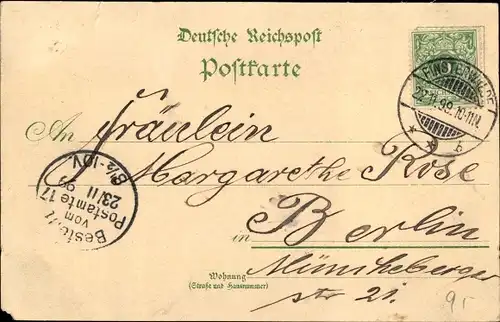 Deutsche Reichspost
Postkarte
FINSTERWALDE
99. 10-11V.
* * b
An Fräulein
Margarethe Rose
in Berlin
Wohnung Müncheberger
(Straße und Hausnummer)
str 21.
Bestellt
vom
Postamte 17
23/11 99
8½-10V
91